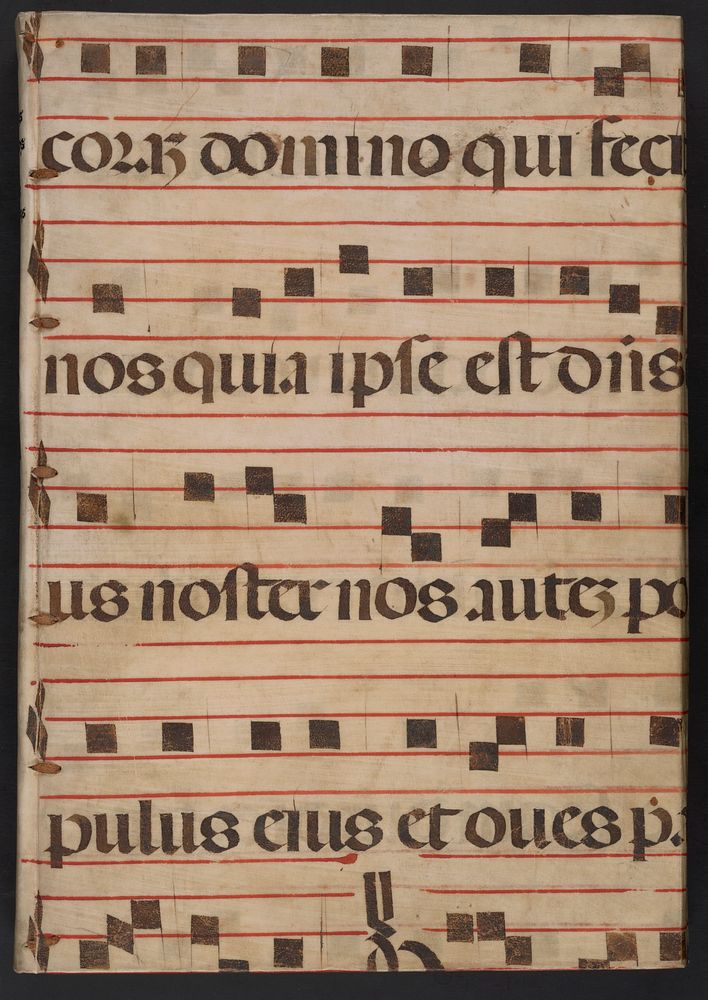 coraʒ domino qui feci
nos quia ipse est dn̄s
us noster nos auteʒ po
pulus eius et oues p